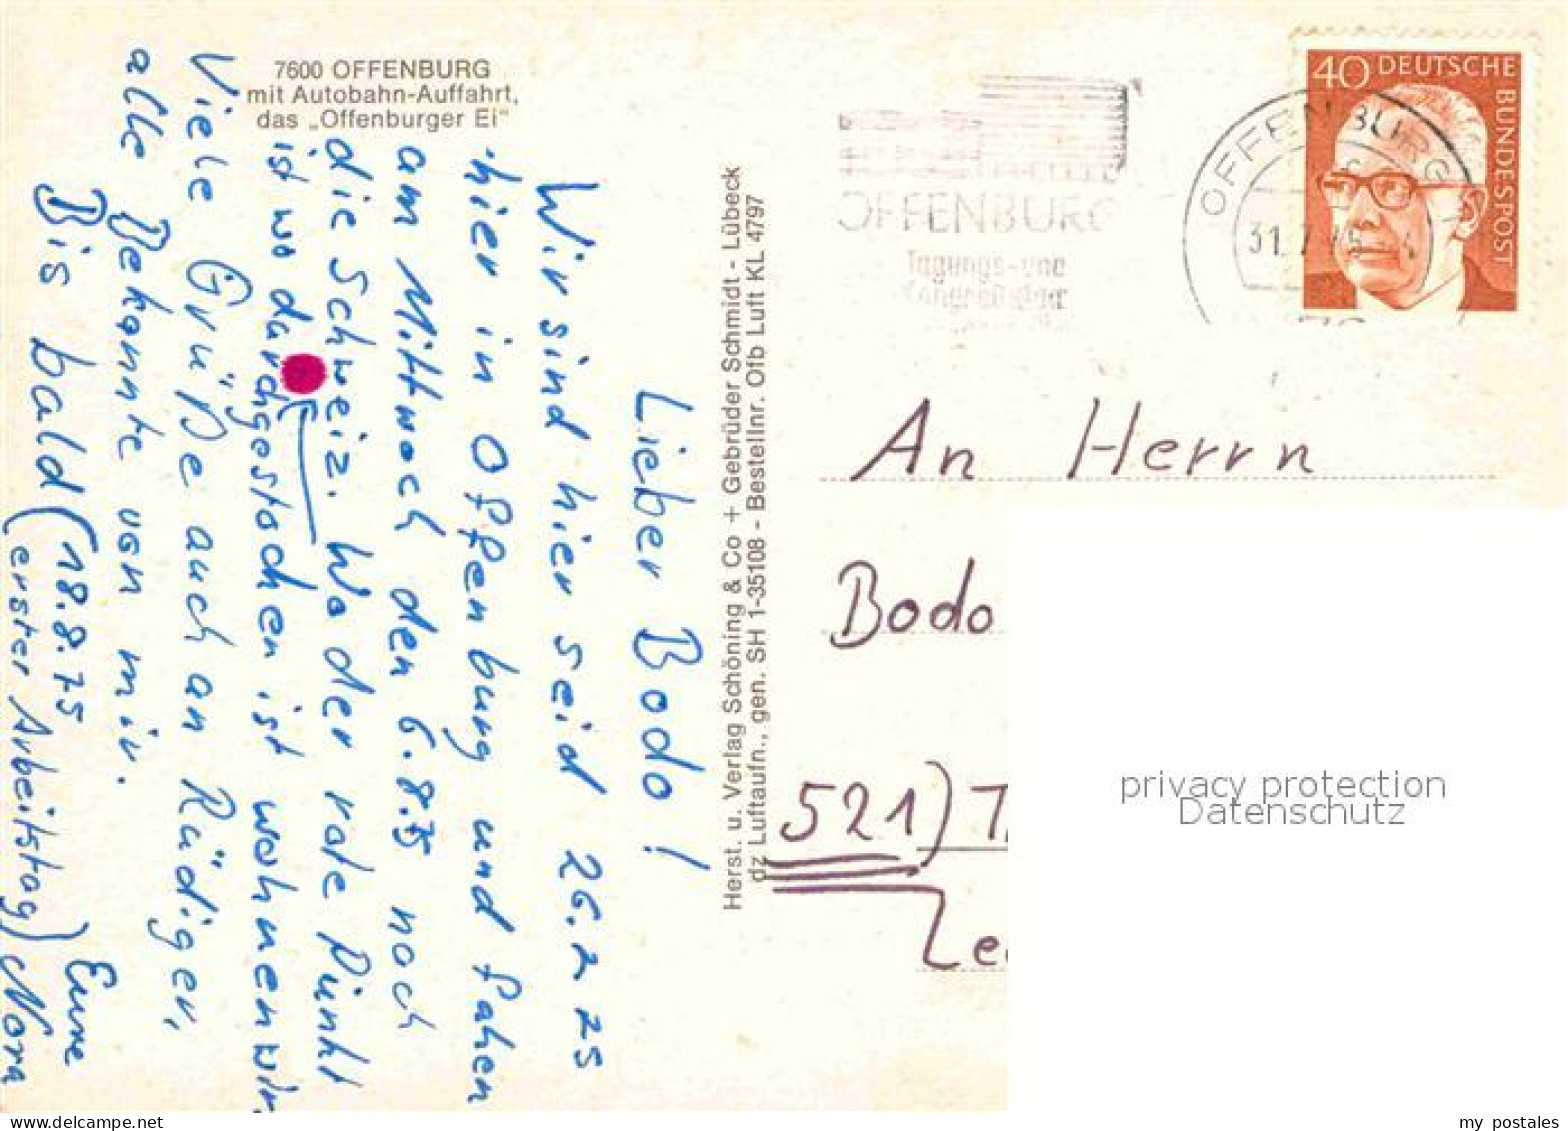 7600 OFFENBURG
mit Autobahn-Auffahrt,
das „Offenburger Ei“
Lieber Bodo!
Wir sind hier seid 26.7 75
hier in Offenburg und fahen
am Mittwoch den 6.8.75 noch
die Schweiz. Wo der rote Pünkt
ist wo durchgestochen ist wohnen wir.
Viele Grüße auch an Rüdiger,
alle Bekannte von mir.
Bis bald (18.8.75
erster Arbeitstag)
Eure
Nora
Herst. u. Verlag Schöning & Co + Gebrüder Schmidt - Lübeck
dz Luftaufn., gen. SH 1-35108 - Bestellnr. Ofb Luft KL 4797
OFFENBURG
Tagungs-und
40 DEUTSCHE
BUNDESPOST
OFFENBURG
31.7.75
An Herrn
Bodo
521) T
Le
privacy protection
Datenschutz
my postales